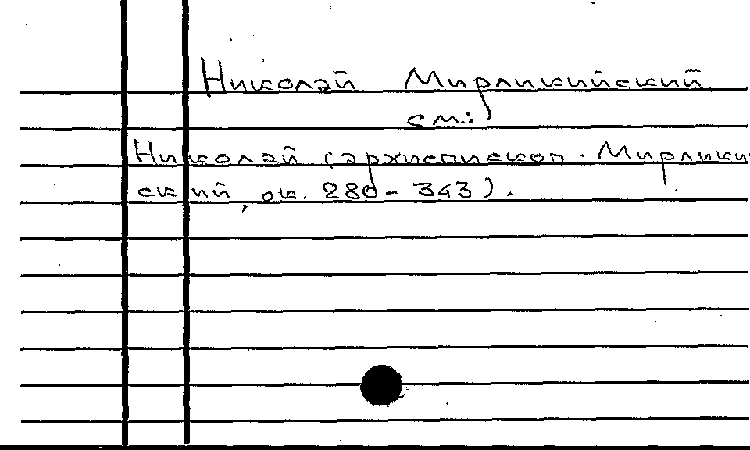 Николай Мирликийский
см:
Николай (архиепископ Мирлики
ский, ок. 280 - 343).